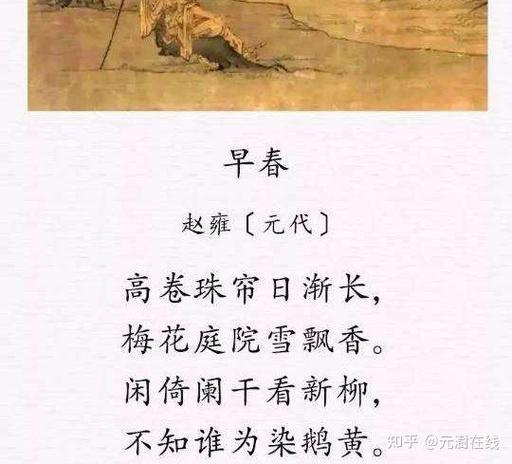 早春
赵雍〔元代〕
高卷珠帘日渐长，
梅花庭院雪飘香。
闲倚阑干看新柳，
不知谁为染鹅黄。
知乎 @元澍在线